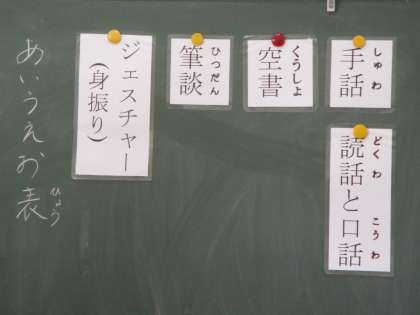 しゅわ
手話
どくわ こうわ
読話と口話
くうしょ
空書
ひつだん
筆談
ジェスチャー
(身振り)
あいうえお表
ひょう